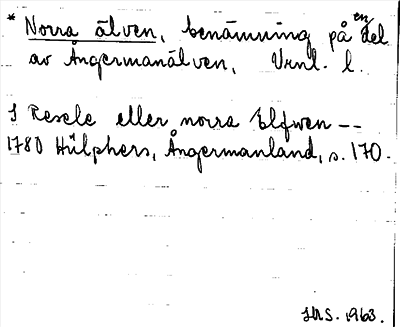 * Norra älven, benämning på en del
av Ångermanälven, Vrnl. l.
I Resele eller norra Elfwen --
1780 Hülphers, Ångermanland, s. 170.
1963.